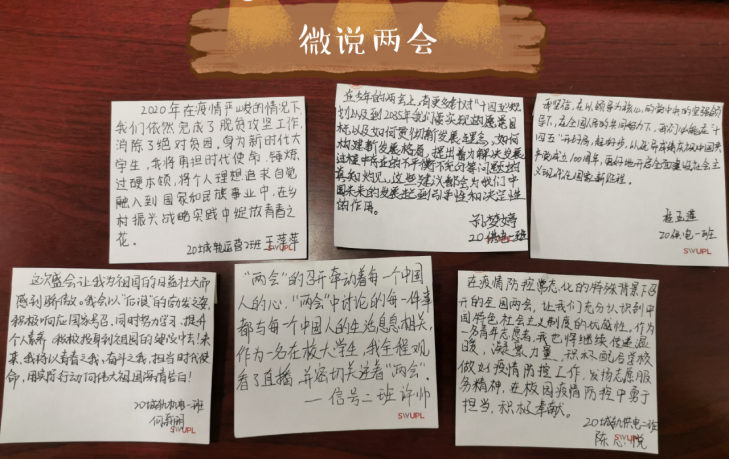 微说两会
2020年在疫情严峻的情况下,
我们依然完成了脱贫攻坚工作,
消除了绝对贫困。身为新时代大
学生,我将肩担时代使命,锤炼
过硬本领,将个人理想追求自觉
融入到国家和民族事业中,在乡
村振兴战略实践中绽放青春之
花。
20城轨运营2班 王萍萍
SWUPL
在今年的两会上,尚更多针对“十四五”规
划以及到2035年我们要实现的愿景目
标以及如何贯彻新发展理念,如何
构建新发展格局,提出着力解决发展
过程中存在的不平衡不充分等问题的
真知灼见,这些建议都会为们中
国未来的发展起到引导性和决定性
的作用。
孔梦婷
20供电一班
SWUPL
党中央的坚强领
导下,在全国人民的共同努力下,我们
四五”开好局,起好步,以优异成绩庆祝中国共
产党成立100周年,更好地开启全面建设社会主
义现代化国家新征程。
20供电一班
SWUPL
这次盛会让我为祖国的日益壮大而
感到骄傲。我会以“后浪”的奋发之姿
积极响应国家号召,同时努力学习,提升
个人素养,积极投身到祖国的建设中去!未
来,我将以青春之我,奋斗之我,担当时代使
命,用实际行动向伟大祖国深情告白!
20城轨机电一班
SWUPL
“两会”的召开牵动着每一个中国
人的心,“两会”中讨论的每一件事
都与每一个中国人的生活息息相关,
作为一名在校大学生,我全程观
看了直播,并密切关注着“两会”。
——信号二班 许帅
SWUPL
在疫情防控常态化的特殊背景下召
开的全国两会,让我们充分认识到中
国特色社会主义制度的优越性,作为
一名青年志愿者,我也将继续传递温
暖,凝聚力量,积极配合学校
做好疫情防控工作,发扬志愿服
务精神,在校园疫情防控中勇于
担当,积极奉献。
20城轨供电二班
陈思悦
SWUPL